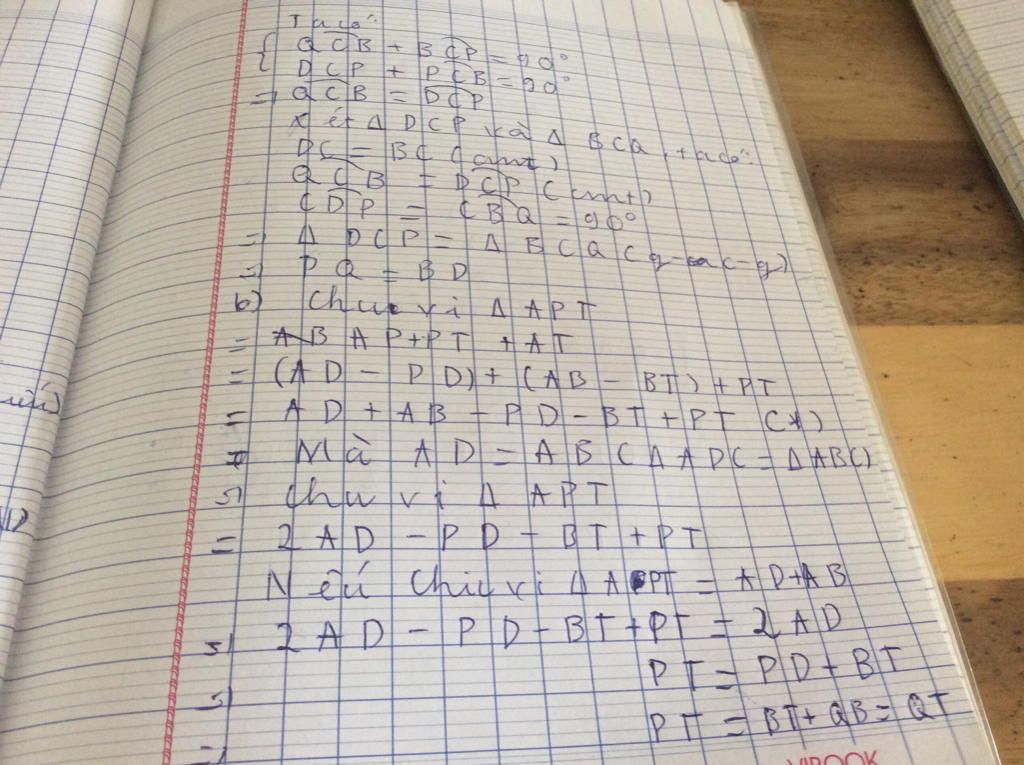 Ta có:
{ QCB + BCP = 90°
DCP + PCB = 90°
=> QCB = DCP
Xét Δ DCP và Δ BCQ, ta có:
DC = BC (cmt)
QCB = DCP (cmt)
CDP = CBQ = 90°
=> Δ DCP = Δ BCQ (g-c-g)
=> PQ = BD
b) Chu vi Δ APT
= AB AP + PT + AT
= (AD - PD) + (AB - BT) + PT
= AD + AB - PD - BT + PT (*)
Mà AD = AB (Δ ADC = Δ ABC)
=> Chu vi Δ APT
= 2AD - PD - BT + PT
Nếu Chu vi Δ APT = AD + AB
=> 2AD - PD - BT + PT = 2AD
=> PT = PD + BT
=> PT = BT + QB = QT
VIBOOK